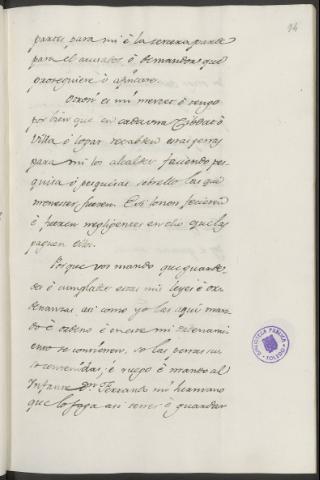 14
partes para mi è la tercera parte
para el acusador, ó demandor que
prosiguiere ó apucare.
Otrosi es mi merced è tengo
por bien que en cada una Cibdat ó
Villa ó logar recabden estas penas
para mi los alcaldes faciendo pes-
quisa ó pesquisas sobrello las que
menester fueren. E si lo non ficieren
è fueren negligentes en ello que las
paguen ellos.
Porque vos mando que guarde-
des è cumplades estas mis leyes è or-
denanzas asi como yo las aqui man-
do è ordeno è en este mi ordenami-
ento se contienen, so las penas su-
so contenidas; è ruego è mando al
Infante don Ferrando mi hermano
que lo faga asi tener è guardar
BIBLIOTECA PUBLICA
TOLEDO